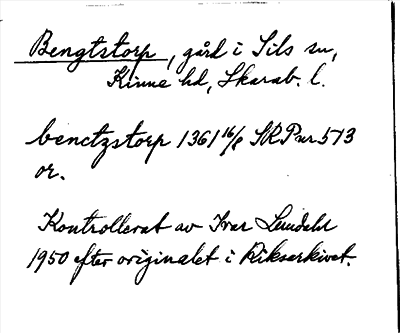 Bengtstorp, gård i Sils sn,
Kinne hd, Skarab. l.
benctzstorp 1361 16/8 SRP nr 573
or.
Kontrollerat av Ivar Lundahl
1950 efter originalet i Riksarkivet.